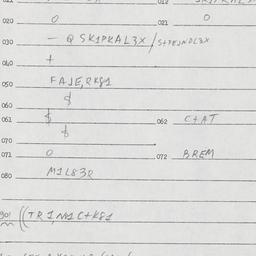 020 0 021 0
030 - QSK1PKAL3X/S+PEJNDL3X
040 +
050 FAJE,RK81
060 $
061 $ 062 C+AT
$
070
071 0 072 BREM
080 M1L83R
((TR1,N1C+K81